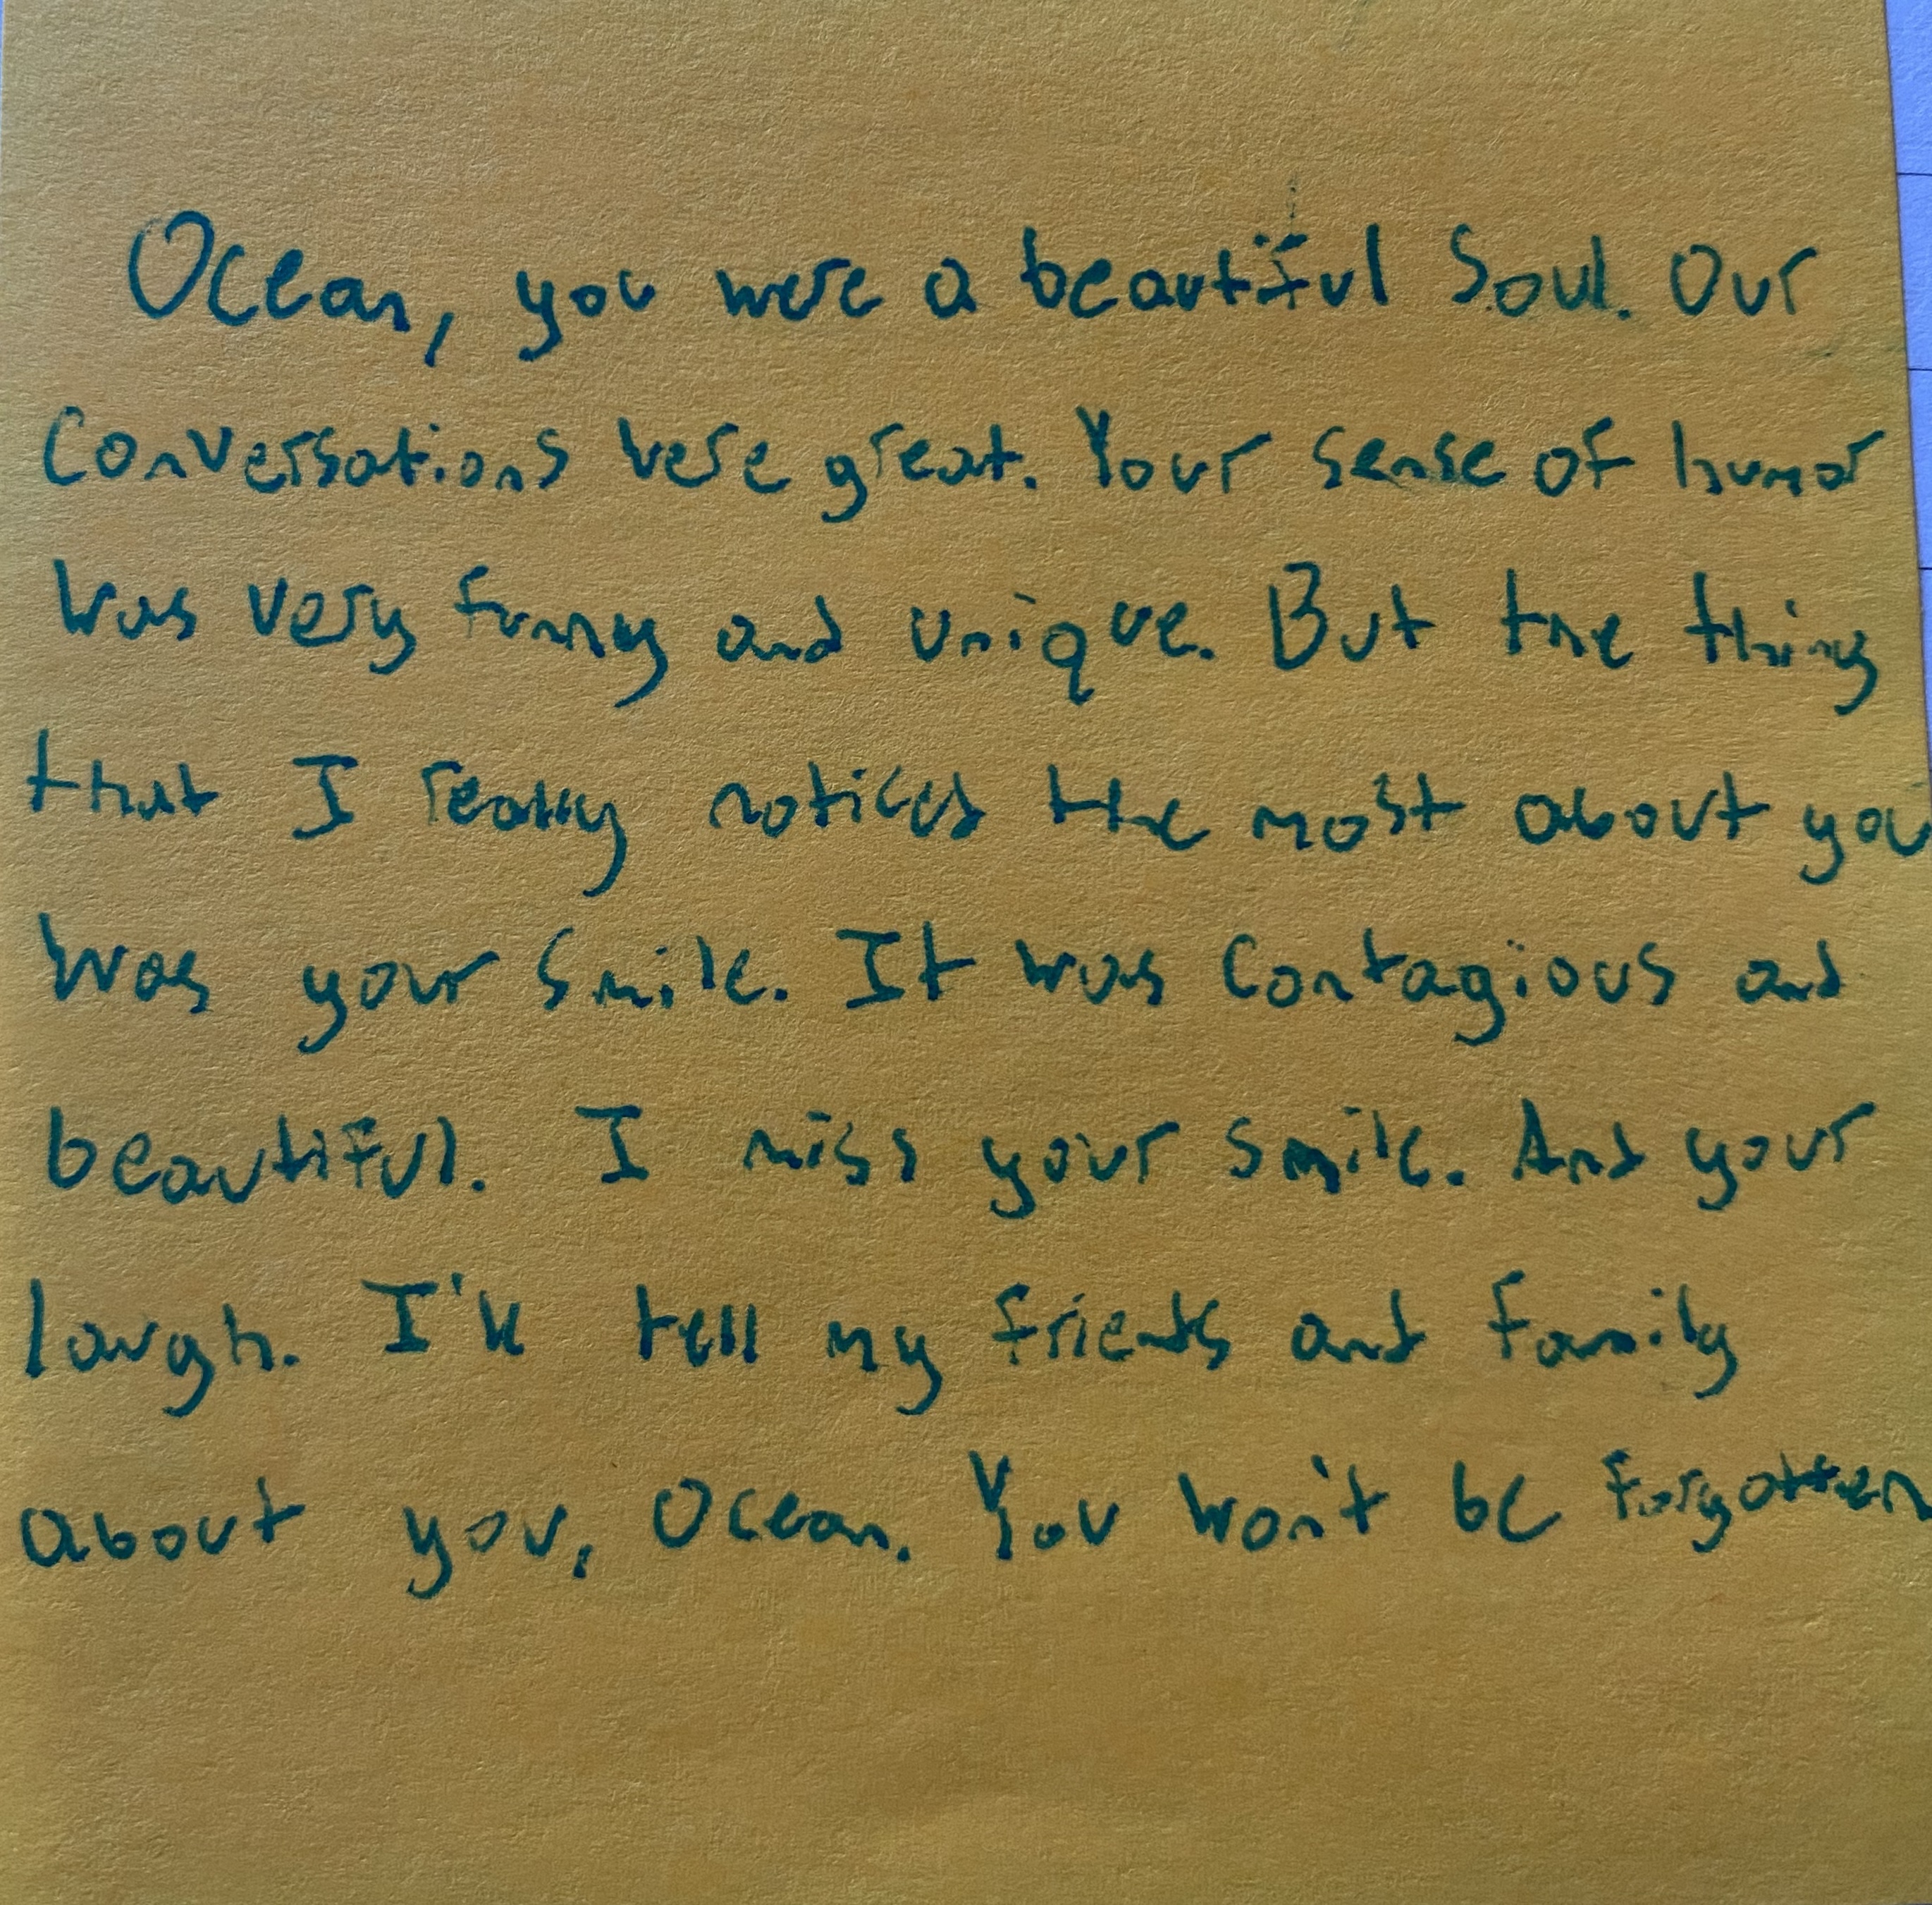 Ocean, you were a beautiful Soul. Our
Conversations were great. Your sense of humor
was very funny and unique. But the thing
that I really noticed the most about you
was your smile. It was contagious and
beautiful. I miss your smile. And your
laugh. I'll tell my friends and family
about you, Ocean. You won't be forgotten